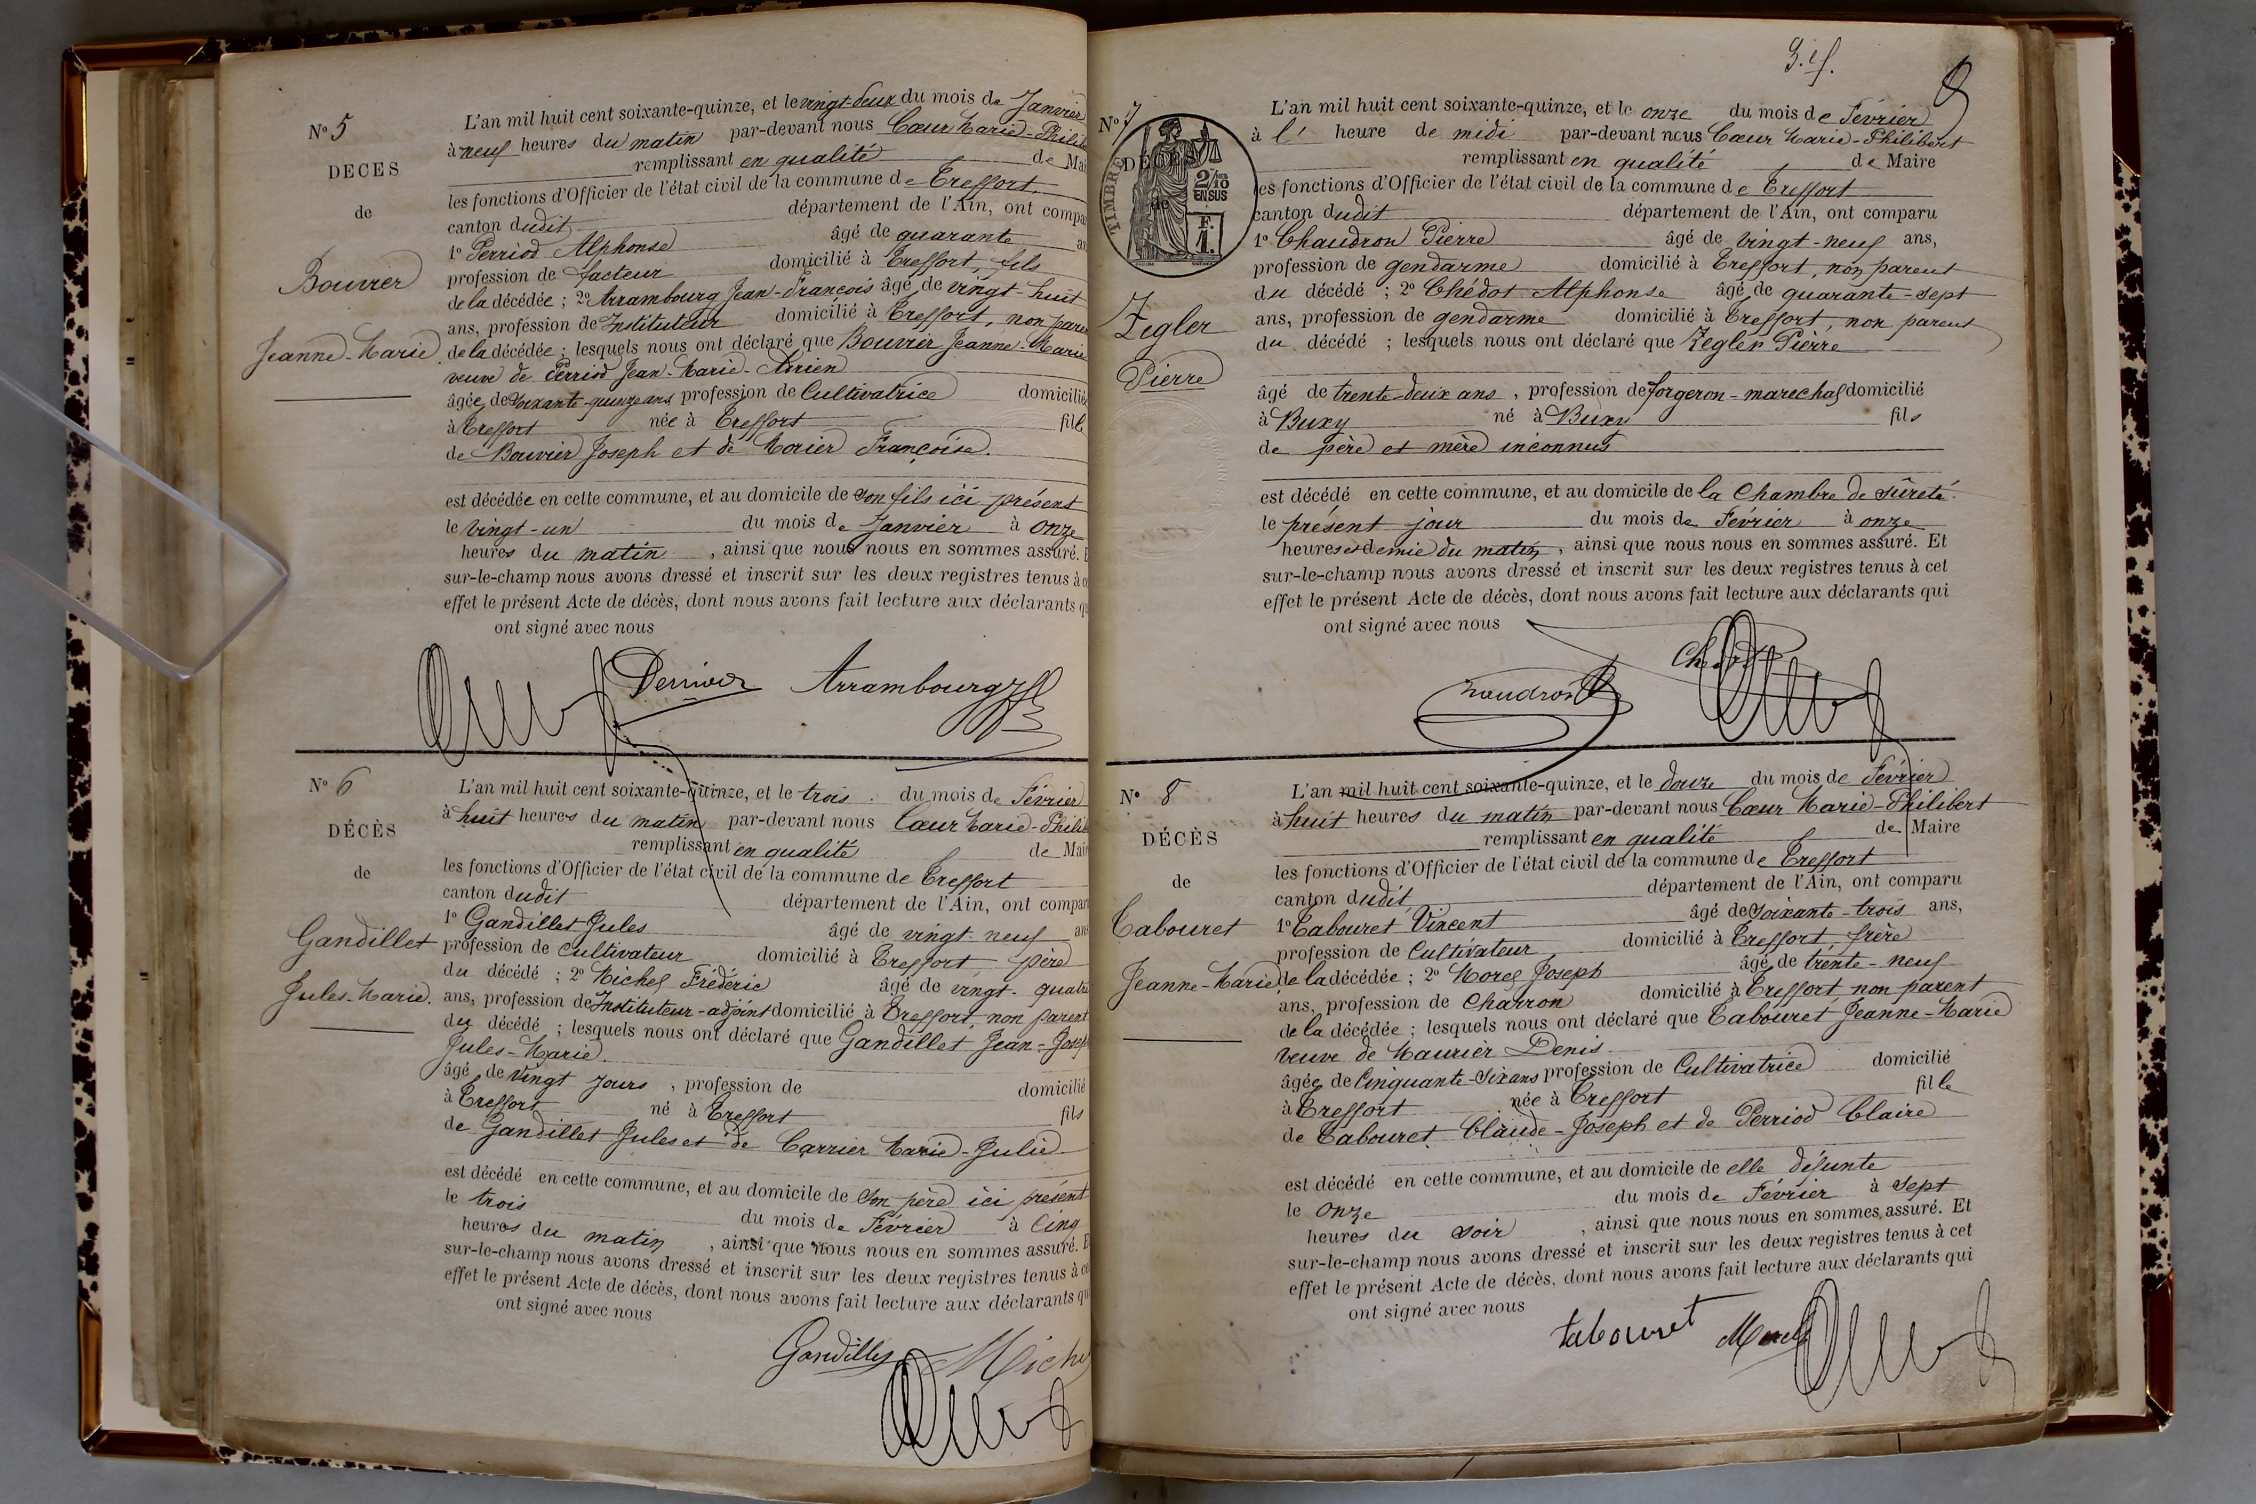 N° 5
DECES
de
Bouvier
Jeanne-Marie
L'an mil huit cent soixante-quinze, et le vingt-deux du mois de Janvier
à neuf heures du matin par-devant nous Cœur Marie-Philib
remplissant en qualité de Mai
les fonctions d'Officier de l'état civil de la commune de Treffort
canton dudit département de l'Ain, ont compa
1° Perriod Alphonse âgé de quarante an
profession de facteur domicilié à Treffort, fils
de la décédée ; 2° Arrambourg Jean-François âgé de vingt-huit
ans, profession de Instituteur domicilié à Treffort, non paren
de la décédée ; lesquels nous ont déclaré que Bouvier Jeanne-Marie
veuve de Perriod Jean-Marie-Adrien
âgée de soixante-quinze ans profession de Cultivatrice domicilié
à Treffort née à Treffort fille
de Bouvier Joseph et de Morier Françoise.
est décédée en cette commune, et au domicile de son fils ici présent
le vingt-un du mois de Janvier à onze
heures du matin , ainsi que nous nous en sommes assuré. E
sur-le-champ nous avons dressé et inscrit sur les deux registres tenus à ce
effet le présent Acte de décès, dont nous avons fait lecture aux déclarants qu
ont signé avec nous
Perriod Arrambourg
N° 6
DÉCÈS
de
Gandillet
Jules-Marie.
L'an mil huit cent soixante-quinze, et le trois du mois de Février
à huit heures du matin par-devant nous Cœur Marie-Philib
remplissant en qualité de Mair
les fonctions d'Officier de l'état civil de la commune de Treffort
canton dudit département de l'Ain, ont compar
1° Gandillet Jules âgé de vingt-neuf ans
profession de cultivateur domicilié à Treffort père
du décédé ; 2° Michel Frédéric âgé de vingt-quatre
ans, profession de Instituteur-adjoint domicilié à Treffort, non parent
du décédé ; lesquels nous ont déclaré que Gandillet Jean-Joseph
Jules-Marie.
âgé de vingt jours , profession de domicilié
à Treffort né à Treffort fils
de Gandillet Jules et de Carrier Marie-Julie
est décédé en cette commune, et au domicile de son père ici présent
le trois du mois de Février à Cinq
heures du matin , ainsi que nous nous en sommes assuré. E
sur-le-champ nous avons dressé et inscrit sur les deux registres tenus à ce
effet le présent Acte de décès, dont nous avons fait lecture aux déclarants qu
ont signé avec nous
Gandillet Miche
N° 7
TIMBRE
2/10
EN SUS
F.
1.
DÉCÈS
de
Zegler
Pierre
L'an mil huit cent soixante-quinze, et le onze du mois de Février
à l' heure de midi par-devant nous Cœur Marie-Philibert
remplissant en qualité de Maire
les fonctions d'Officier de l'état civil de la commune de Treffort
canton dudit département de l'Ain, ont comparu
1° Chaudron Pierre âgé de vingt-neuf ans,
profession de gendarme domicilié à Treffort, non parent
du décédé ; 2° Chédot Alphonse âgé de quarante-sept
ans, profession de gendarme domicilié à Treffort, non parent
du décédé ; lesquels nous ont déclaré que Zegler Pierre
âgé de trente-deux ans , profession de forgeron-marechal domicilié
à Buxy né à Buxy fils
de père et mère inconnus
est décédé en cette commune, et au domicile de la Chambre de sûreté.
le présent jour du mois de Février à onze
heures et demie du matin , ainsi que nous nous en sommes assuré. Et
sur-le-champ nous avons dressé et inscrit sur les deux registres tenus à cet
effet le présent Acte de décès, dont nous avons fait lecture aux déclarants qui
ont signé avec nous
N° 8
DÉCÈS
de
Tabouret
Jeanne-Marie
L'an mil huit cent soixante-quinze, et le douze du mois de Février
à huit heures du matin par-devant nous Cœur Marie-Philibert
remplissant en qualité de Maire
les fonctions d'Officier de l'état civil de la commune de Treffort
canton dudit département de l'Ain, ont comparu
1° Tabouret Vincent âgé de soixante-trois ans,
profession de Cultivateur domicilié à Treffort frère
de la décédée ; 2° Morel Joseph âgé de trente-neuf
ans, profession de Charron domicilié à Treffort non parent
de la décédée ; lesquels nous ont déclaré que Tabouret Jeanne-Marie
veuve de Maurier Denis
âgée de Cinquante-Six ans profession de Cultivatrice domicilié
à Treffort née à Treffort fille
de Tabouret Claude-Joseph et de Perriod Claire
est décédé en cette commune, et au domicile de elle défunte
le onze du mois de Février à Sept
heures du soir , ainsi que nous nous en sommes assuré. Et
sur-le-champ nous avons dressé et inscrit sur les deux registres tenus à cet
effet le présent Acte de décès, dont nous avons fait lecture aux déclarants qui
ont signé avec nous
tabouret Morel